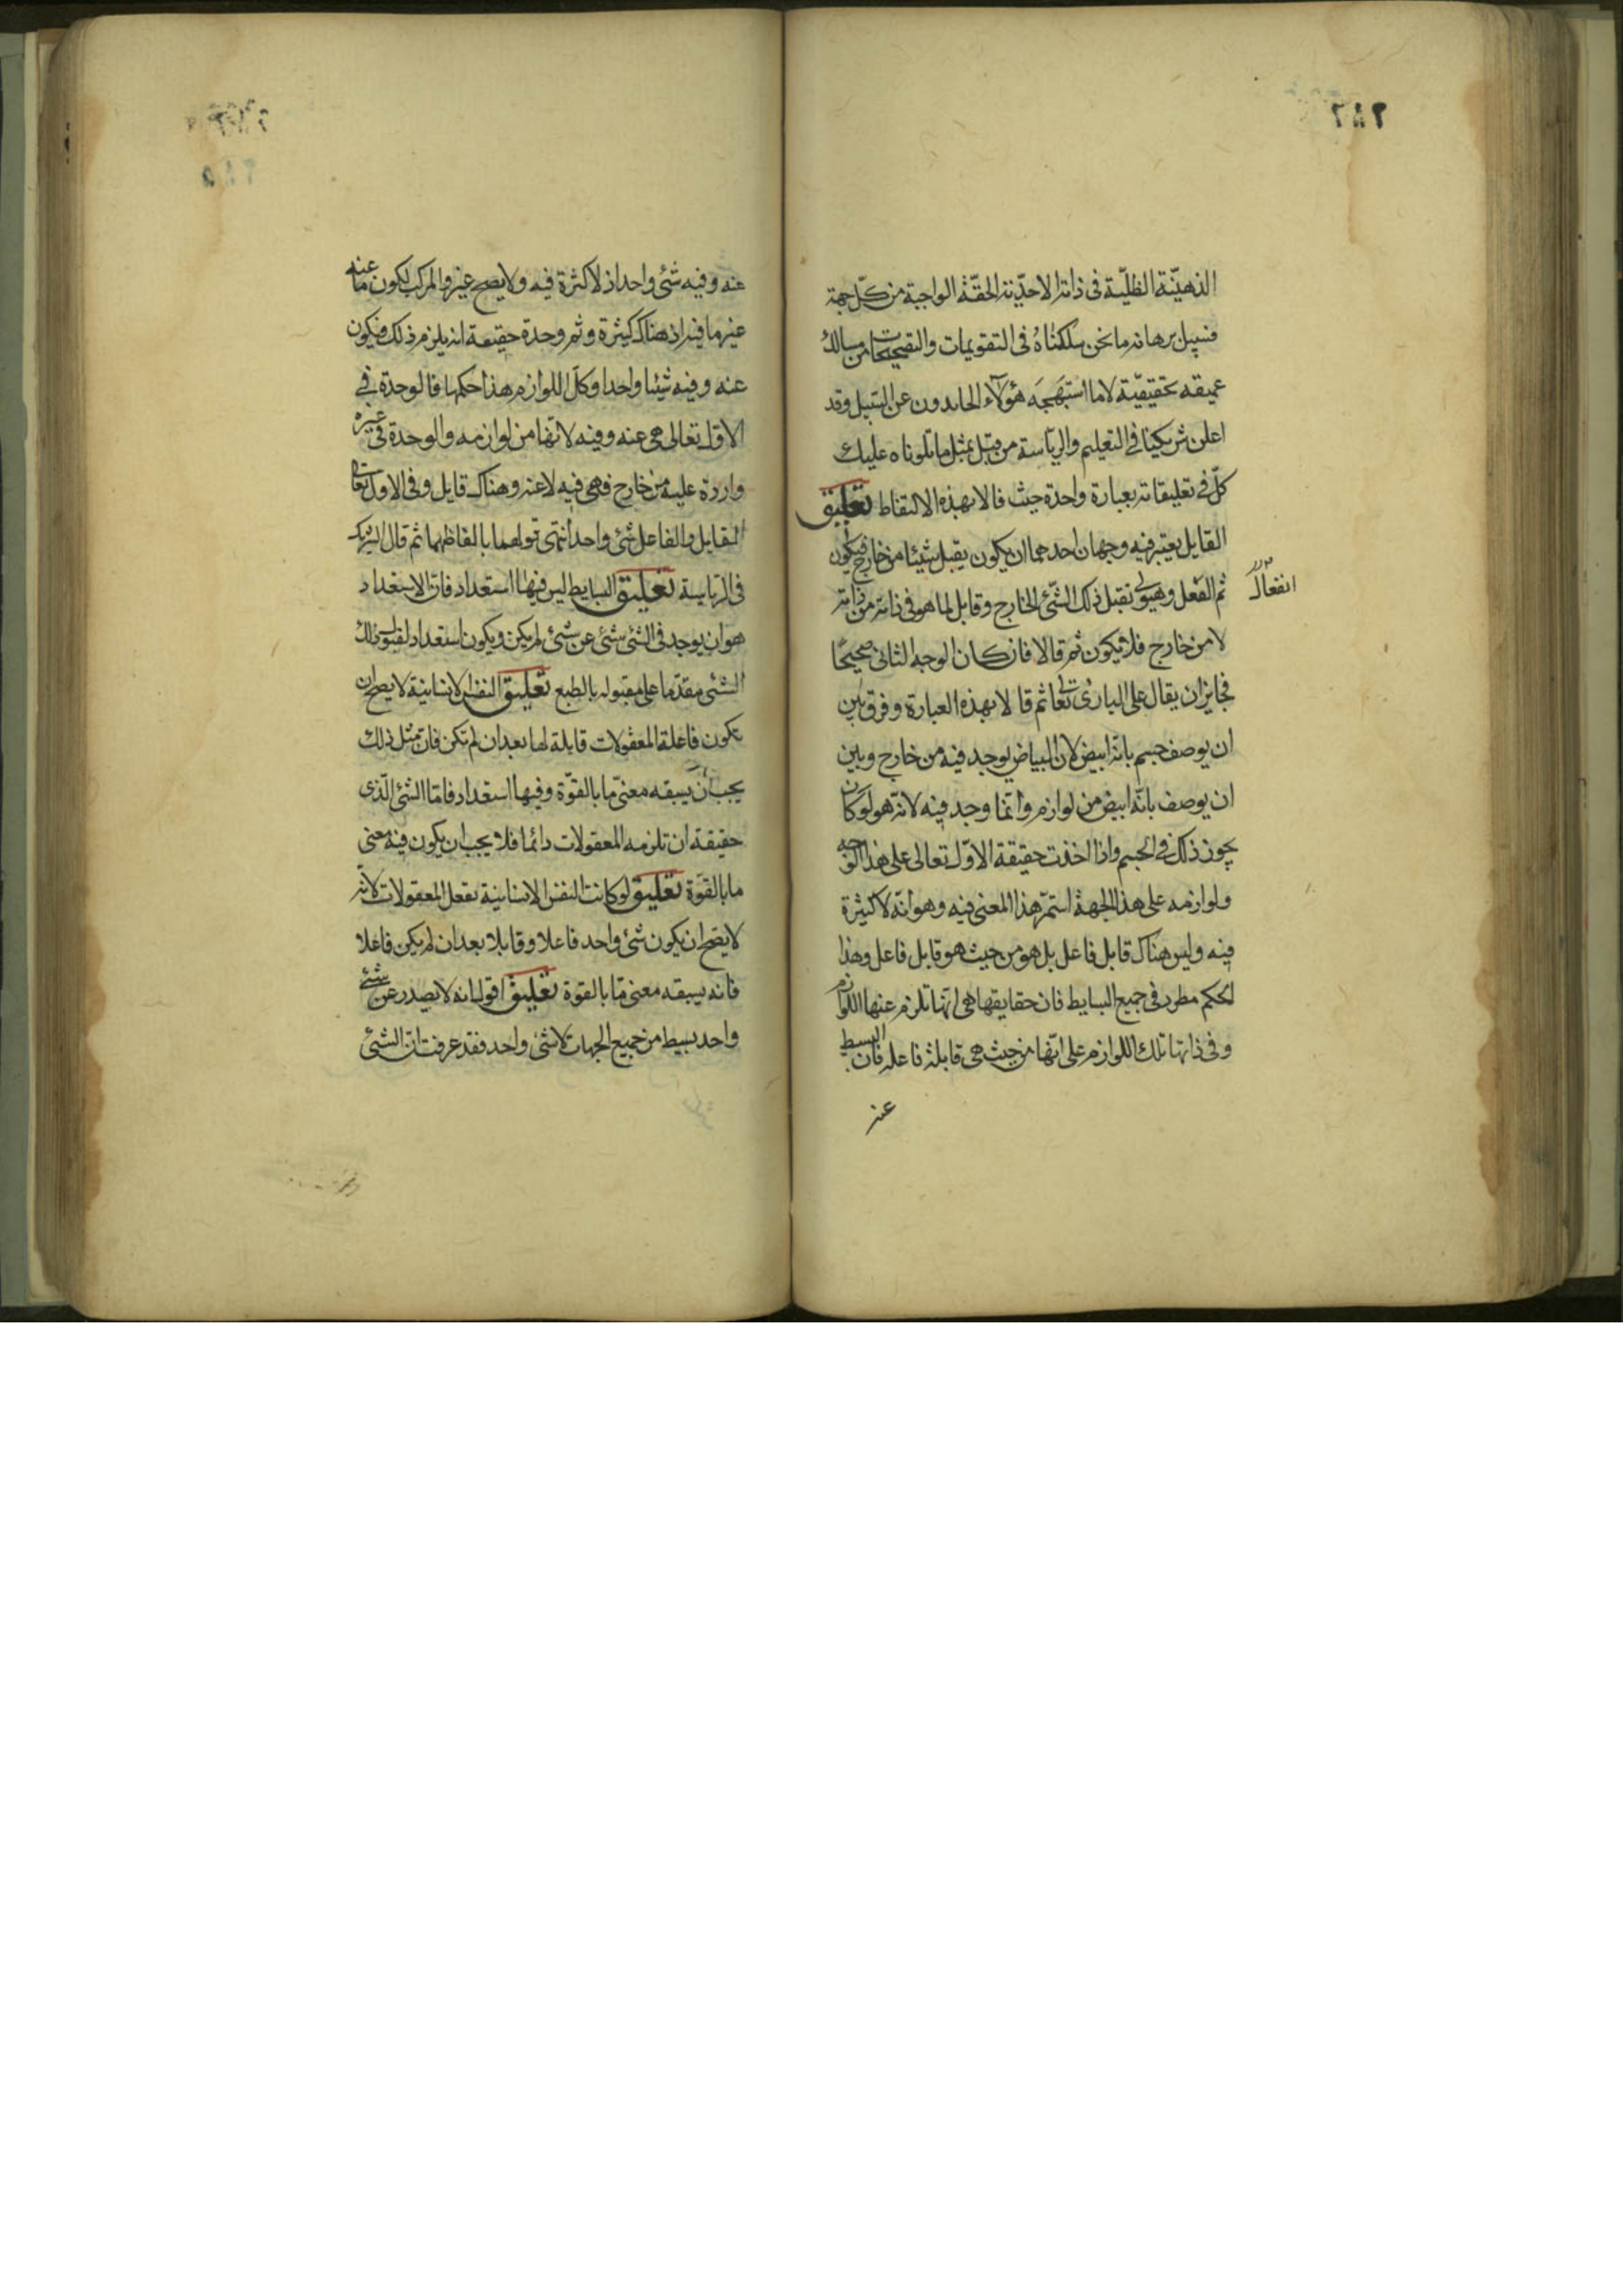 ٢٨٢
الذهنيّة الظليّة فى ذاته الاحديّة الحقّة الواجبة من كلّ جهة
فسبيل برهانه ما نحن سلكناهُ فى التقويمات والتصحيحات من مسالك
عميقه تحقيقيّة لا ما استبهجَه هؤلآء الحايدون عن السّبيل وقد
اعلن شريكينا فى التعليم والرياسة من قبل بمثل ما تلوناه عليك
كلّ فى تعليقاته بعبارة واحدة حيث قالا بهذه الالتقاط تعليق
القابل يعتبر فيه وجهان احدهما ان يكون يقبل شيئا من خارج فيكون
انفعال
ثم الفعل وهيولى تقبل ذلك الشّئ الخارج وقابل لما هو فى ذاته من ذاته
لا من خارج فلا يكون ثم قالا فان كان الوجه الثانى صحيحًا
فجايز ان يقال على البارئ تعالى ثم قالا بهذه العبارة وفرق بين
ان يوصف جسم بانّه ابيض لان البياض يوجد فيه من خارج وبين
ان يوصف بانّه ابيض من لوازمه وانّما وجد فيه لانّه هو لو كان
يجوز ذلك فى الجسم واذا اخذت حقيقة الاوّل تعالى على هذا الوجه
ولوازمه على هذا الجهة استمرّ هذا المعنى فيه وهو انّه لا كثرة
فيه وليس هناك قابل فاعل بل هو من حيث هو قابل فاعل وهذا
الحكم مطرد فى جميع البسايط فان حقايقها هى انّها تلزم عنها اللوازم
وفى ذاتها تلك اللوازم على انّها من حيث هى قابلة فاعله فان البسيط
عنه
٢٨٥
عنه وفيه شئ واحد اذ لا كثرة فيه ولا يصح غيره والمركب يكون ما عنه
غير ما فيه اذ هناك كثرة وثم وحدة حقيقة انه يلزم ذلك فيكون
عنه وفيه شيئا واحدا وكل اللوازم هذا حكمها فالوحدة فى
الاوّل تعالى هى عنه وفيه لانها من لوازمه والوحدة فى غيره
واردة عليه من خارج فهى فيه لا عنه وهناك قابل وفى الاول تعالى
القابل والفاعل شئ واحد انتهى قولهما بالفاظهما ثم قال الشريك
فى الرياسة تعليق البسايط ليس فيها استعداد فان الاستعداد
هو ان يوجد فى الشئ شئ عن شئ لم يكن ويكون استعداد لقبول ذلك
الشئ مقدّما على مقبوله بالطبع تعليق النفس الانسانية لا يصح ان
تكون فاعلة المعقولات قابلة لها بعد ان لم تكن فان مثل ذلك
يجب ان يسبقه معنى ما بالقوّة وفيها استعداد فامّا الشئ الّذى
حقيقة ان تلزمه المعقولات دائما فلا يجب ان يكون فيه معنى
ما بالقوّة تعليق لو كانت النفس الانسانية تفعل المعقولات لانه
لا يصّح ان يكون شئ واحد فاعلا وقابلا بعد ان لم يكن فاعلا
فانه يسبقه معنى ما بالقوة تعليق اقول انه لا يصدر عن شئ
واحد بسيط من جميع الجهات الا شئ واحد فقد عرفت ان الشئ